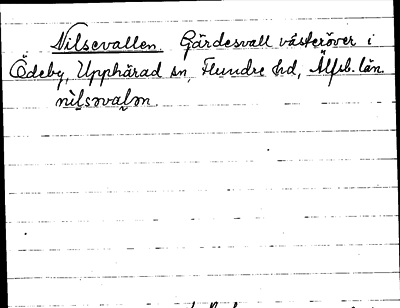 Nilsevallen. Gärdesvall västeröver i
Ödeby, Upphärad sn, Flundre hd, Älfsb. län.
nìlsəvalən.